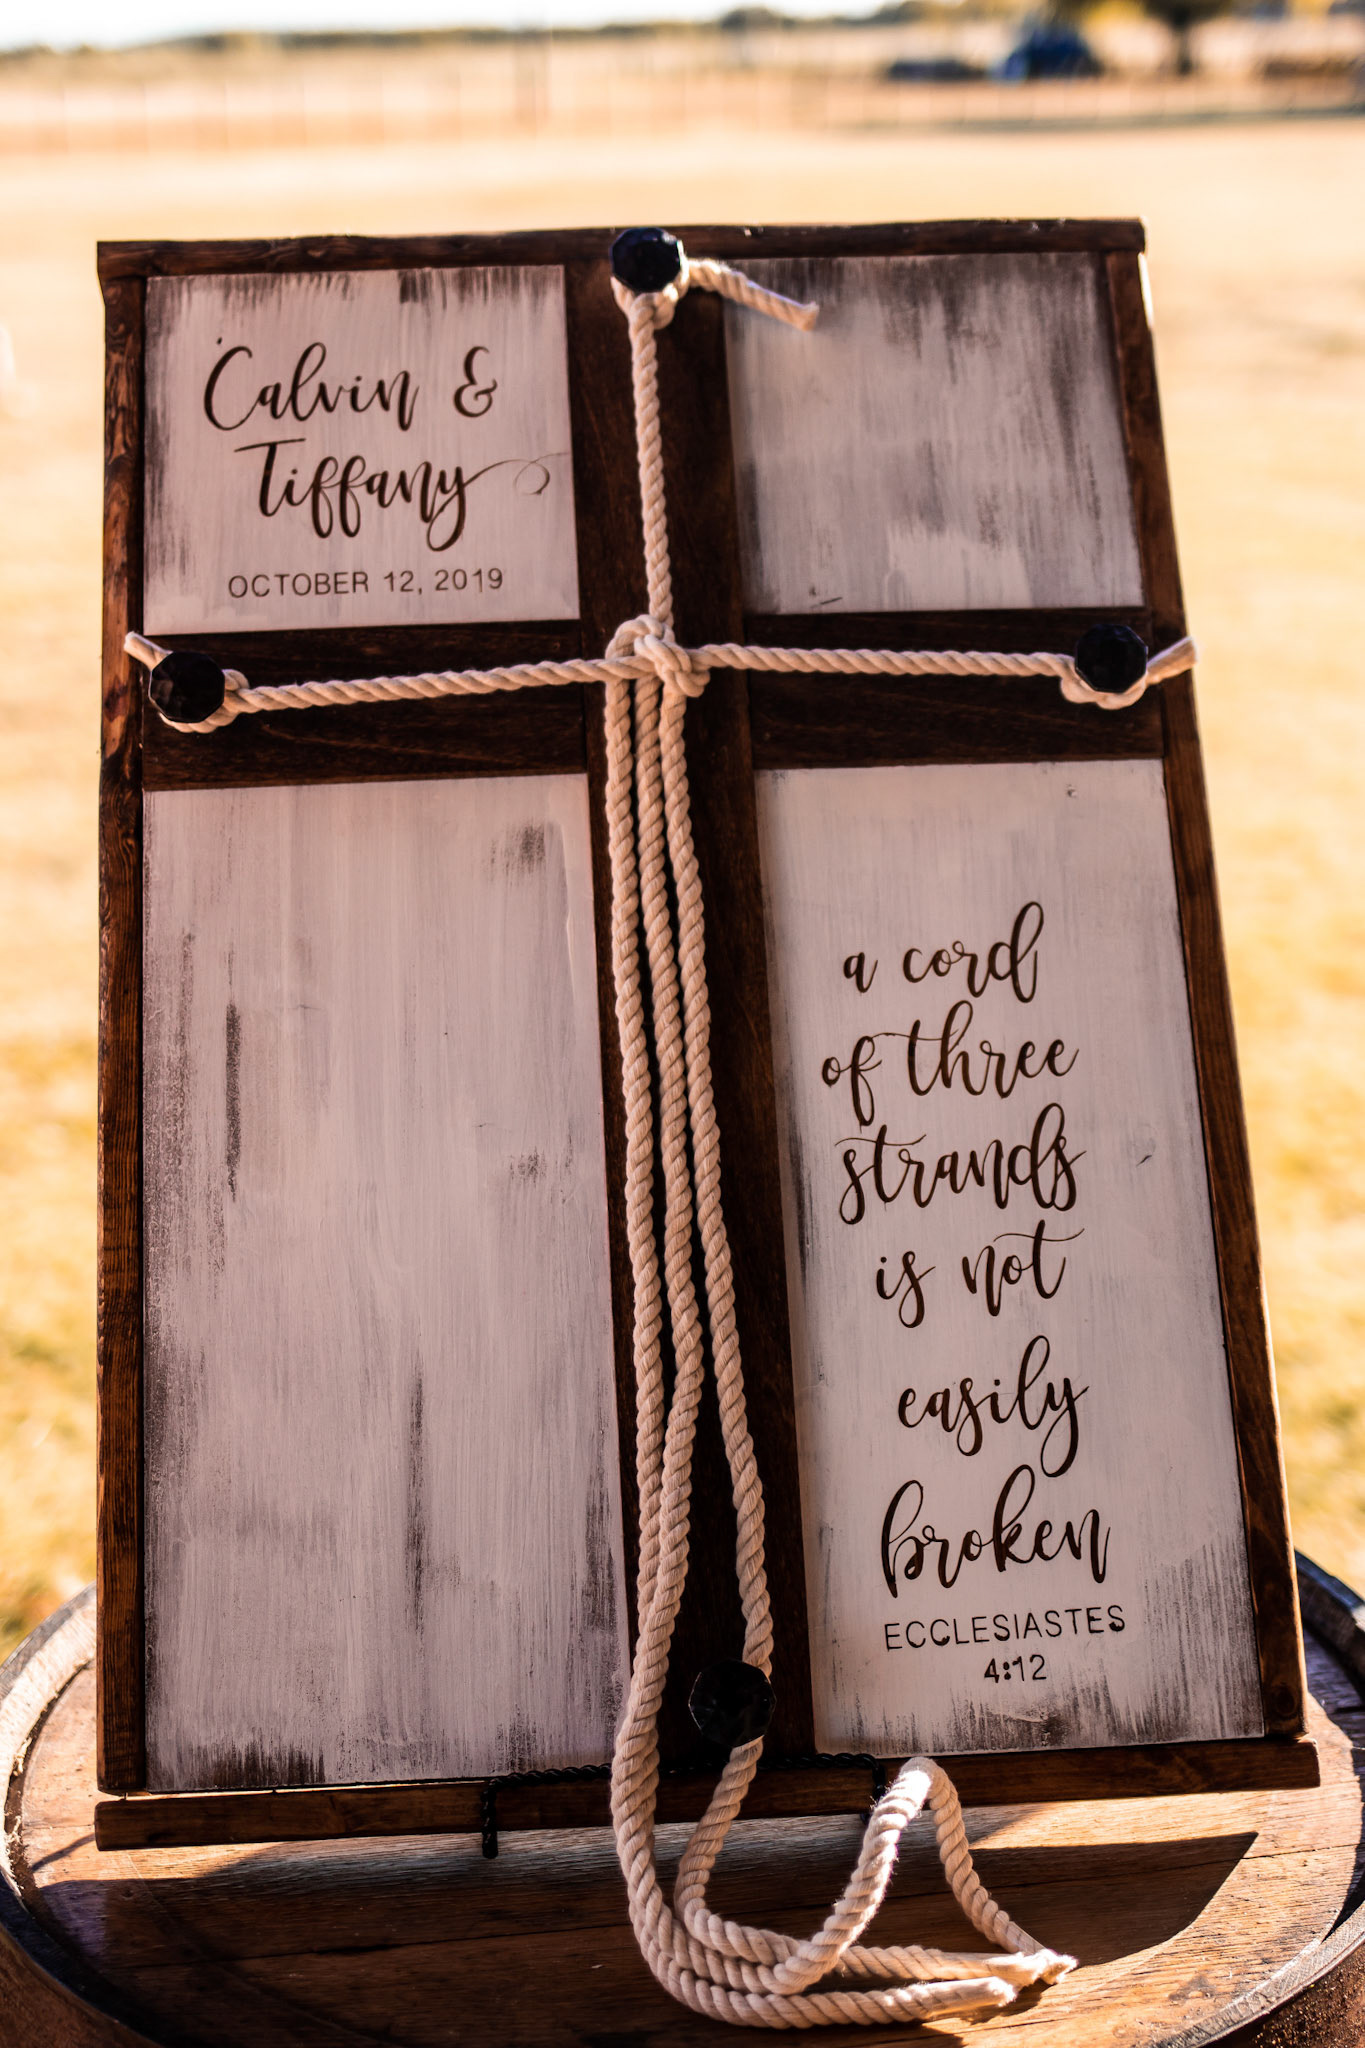 Calvin &
Tiffany
OCTOBER 12, 2019
a cord
of three
strands
is not
easily
broken
ECCLESIASTES
4:12